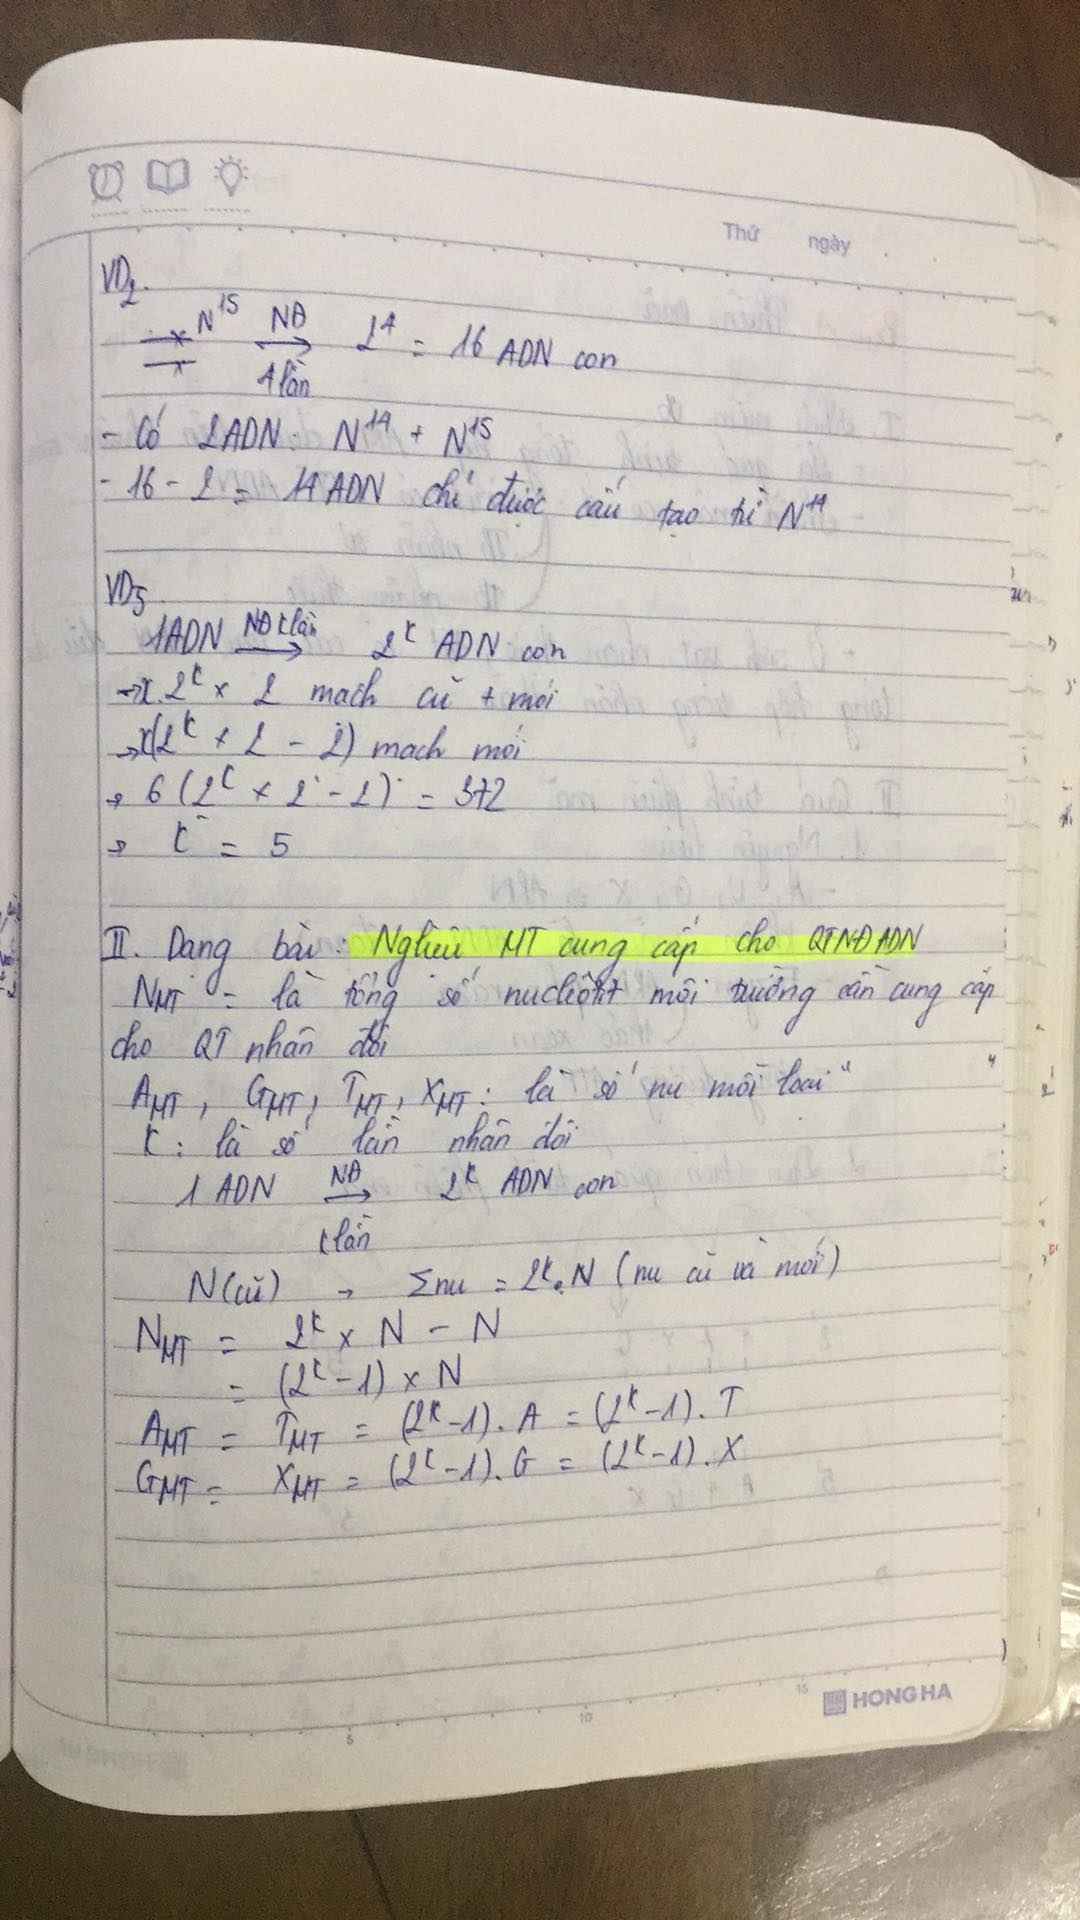 Thứ ngày
VD2.
N15 NĐ 2^4 = 16 ADN con
4 lần
- Có 2ADN: N14 + N15
- 16 - 2 = 14 ADN chỉ được cấu tạo từ N14
VD5
1ADN NĐ k lần → 2^k ADN con
→ x.2^k x 2 mạch cũ + mới
→ x(2^k x 2 - 2) mạch mới
→ 6 (2^k x 2 - 2) = 372
→ k = 5
II. Dạng bài: MT cung cấp cho QTNĐ ADN
NMT = là tổng số nucleotit môi trường cần cung cấp
cho QT nhân đôi
AMT, GMT, TMT, XMT: là số nu mỗi loại
k: là số lần nhân đôi
1 ADN NĐ → 2^k ADN con
k lần
N(cũ) → Σnu = 2^k.N (nu cũ và mới)
NMT = 2^k x N - N
= (2^k - 1) x N
AMT = TMT = (2^k - 1). A = (2^k - 1). T
GMT = XMT = (2^k - 1). G = (2^k - 1). X
5 10 15
HONG HA